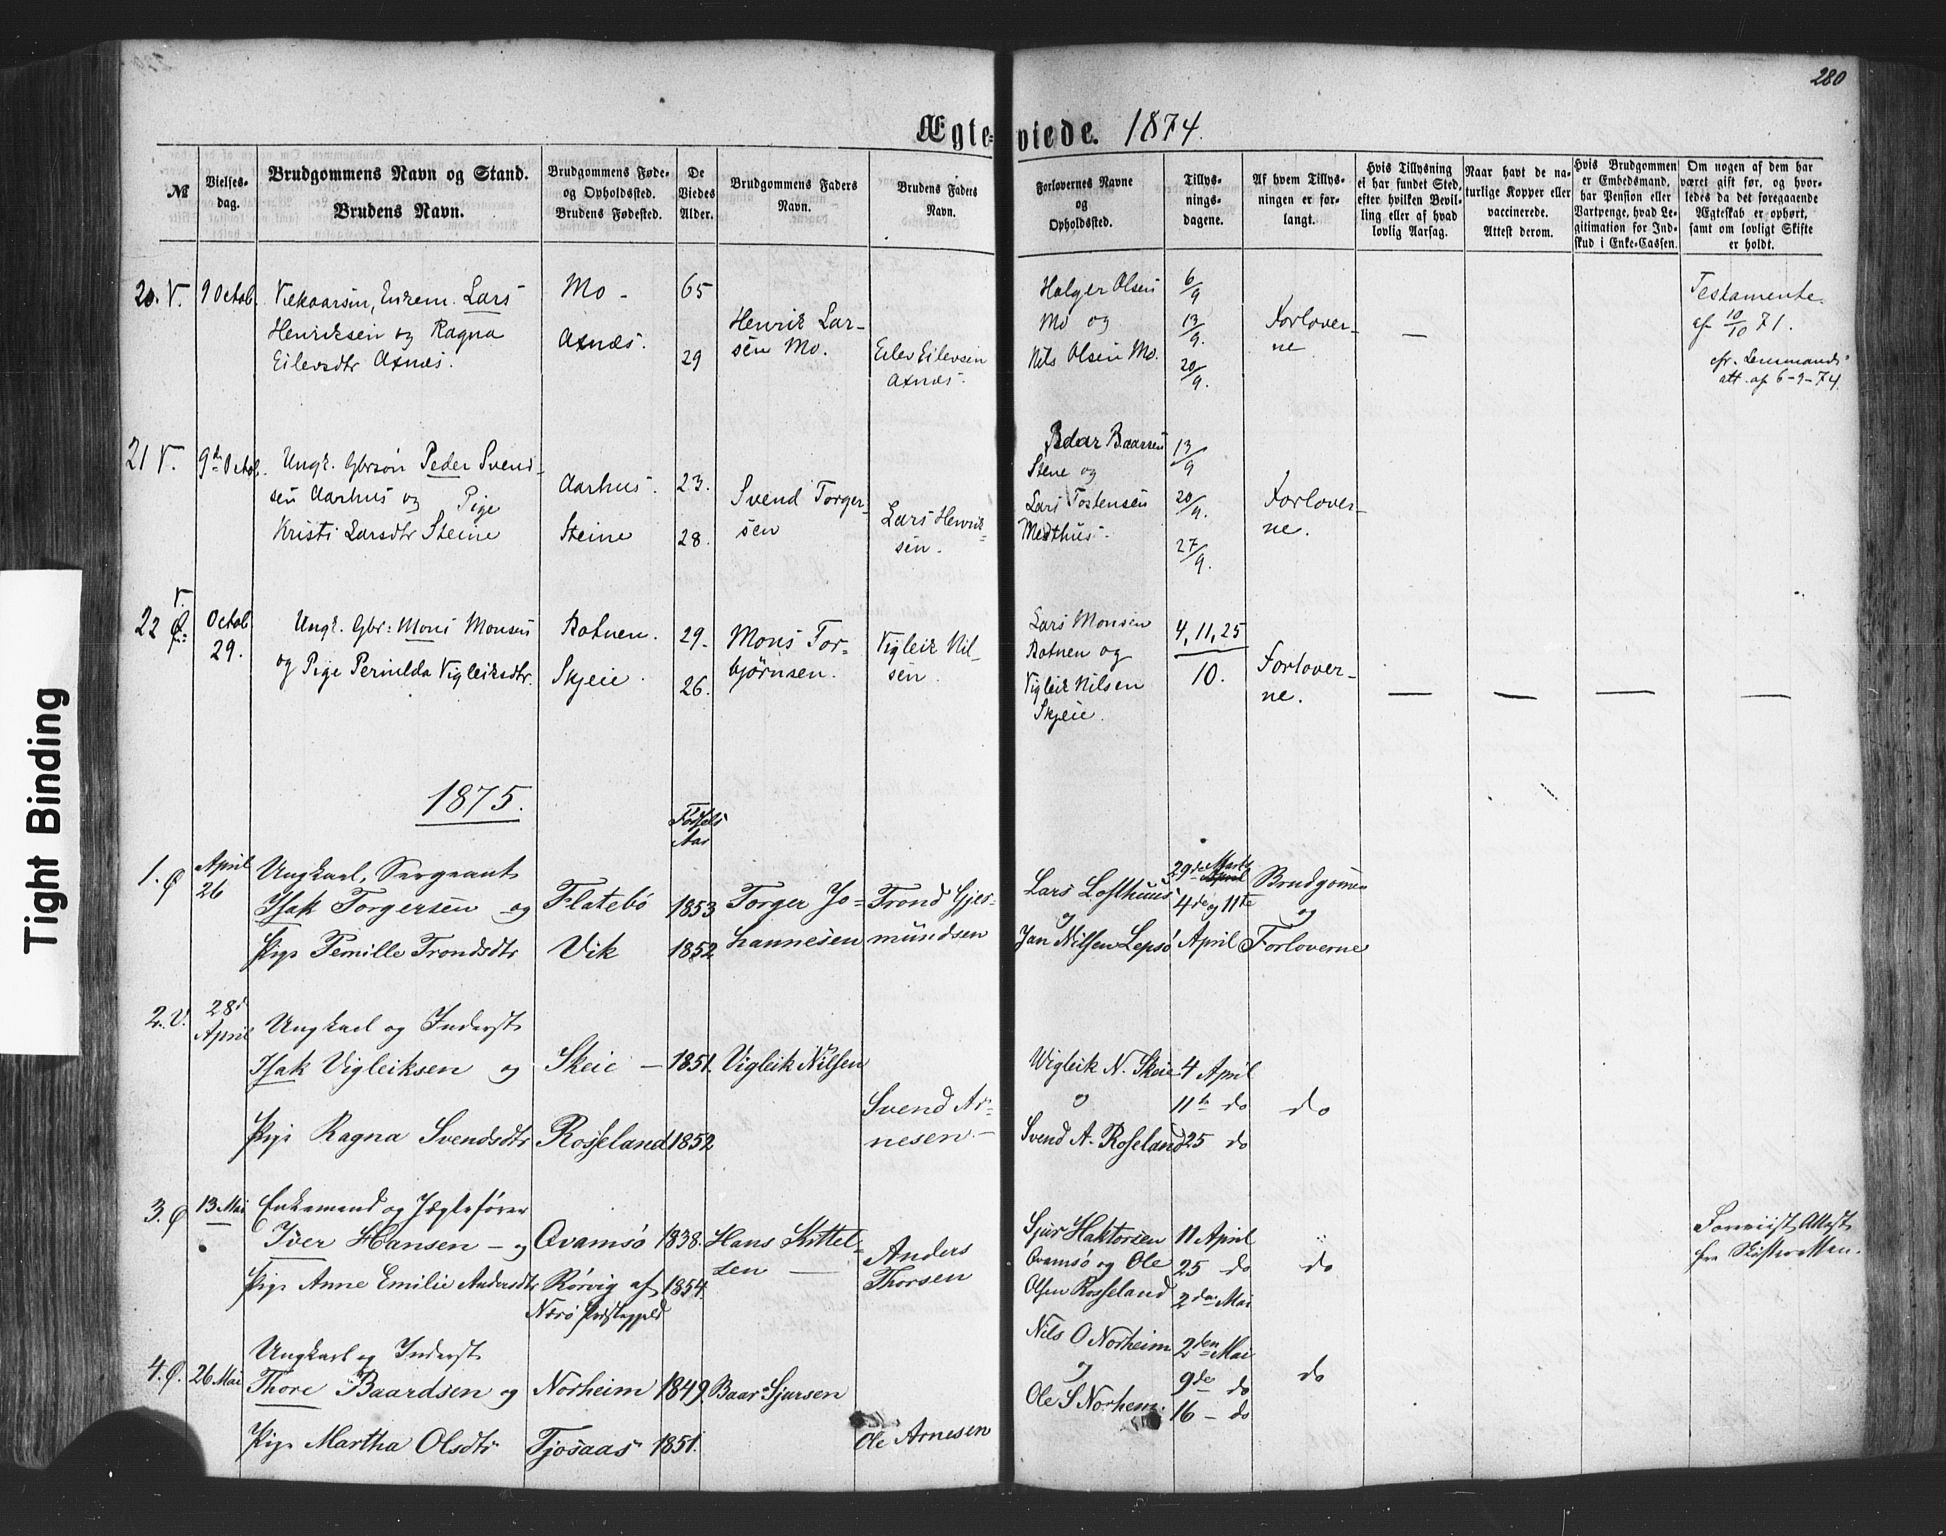 280
Ægteviede. 1874.
№
Vielses-
dag.
Brudgommens Navn og Stand.
Brudens Navn.
Brudgommens Føde-
og Opholdssted.
Brudens Fødested.
De
Viedes
Alder.
Brudgommens Faders
Navn.
Brudens Faders
Navn.
Forlovernes Navne
og
Opholdssted.
Tillys-
nings-
dagene.
Af hvem Tillys-
ningen er for-
langt.
Hvis Tillysning
ei har fundet Sted,
efter hvilken Bevil-
ling eller af hvad
lovlig Aarsag.
Naar havt de na-
turlige Kopper eller
vaccinerede.
Attest derom.
Hvis Brudgommen
er Embedsmand,
har Pension eller
Vartpenge, hvad Le-
gitimation for Ind-
skud i Enke-Cassen.
Om nogen af dem har
været gift før, og hvor-
ledes da det foregaaende
Ægteskab er ophørt,
samt om lovligt Skifte
er holdt.
20. V.
9 Octob.
Enkem. Lars
Henriksen og Ragna
Eilevsdtr Axnæs.
Mo -
Axnæs.
65
29
Henrik Lar-
sen Mo.
Eilev Eilevsen
Axnæs.
Holger Olsen
Mo og
Nils Olsen Mo.
6/9
13/9.
20/9.
Forlover-
ne
—
Testamente
af 10/10 71.
cfr. Lensmands
att. af 6-9-74.
21 V.
9de Octob.
Ungk. Gbrsøn Peder Svend-
sen Aarhus og Pige
Kristi Larsdtr Steine
Aarhus.
Steine
23.
28.
Svend Torger-
sen
Lars Henrik-
sen.
Peder Baarsen
Stene og
Lars Tostensen
Medthus.
13/9
20/9.
27/9.
Forlover-
ne.
22 V. Ø.
Octob
29.
Ungk. Gbr: Mons Monsen
og Pige Pernilda Vigleiksdtr.
Botnen.
Skjeie.
29.
26.
Mons Tor-
bjørnsen.
Vigleik Nil-
sen.
Lars Monsen
Botnen og
Vigleik Nilsen
Skjeie.
4, 11, 25
10.
Forlover-
ne.
— — — —
1875.
Fødsels
Aar
1. Ø
April
26
Ungkarl, Sergeant
Isak Torgersen og
Pige Pernille Trondsdtr
Flatebø
Vik
1853
1852
Torger Jo-
hannesen
Trond Gjer-
mundsen
Lars Lofthuus
og
Jan Nilsen Lepsø
29de Marts April
4de og 11te
April
Brudgomen
og
Forloverne
2. V.
28d
April
Ungkarl og Inderst
Isak Vigleiksen og
Pige Ragna Svendsdtr
Skeie —
Rosseland
1851.
1852
Vigleik Nilsen
Svend Ar-
nesen. —
Wigleik N. Skeie
og
Svend A. Roseland
4 April
11te do
25 do
do
3. Ø
13 Mai
Enkemand og Jægtefører
Iver Hansen — og
Pige Anne Emilie Andersdtr
Qvamsø
Rørvig af
Nærø Præstegjeld
1838.
1854.
Hans Kittel-
sen —
Anders
Thorsen
Sjur Haktorsen
Qvamsø og Ole
Olsen Rosseland
11 April
25 do
2den Mai
do
Forevist Attest
fra Skifteretten.
4. Ø.
26 Mai
Ungkarl og Inderst
Thore Baardsen og
Pige Martha Olsdtr
Norheim
Tjosaas
1849.
1851.
Baar Sjursen
Ole Arnesen
Nils O Norheim
og
Ole S Norheim.
2den Mai
9de do
16 — do
do
Tight Binding